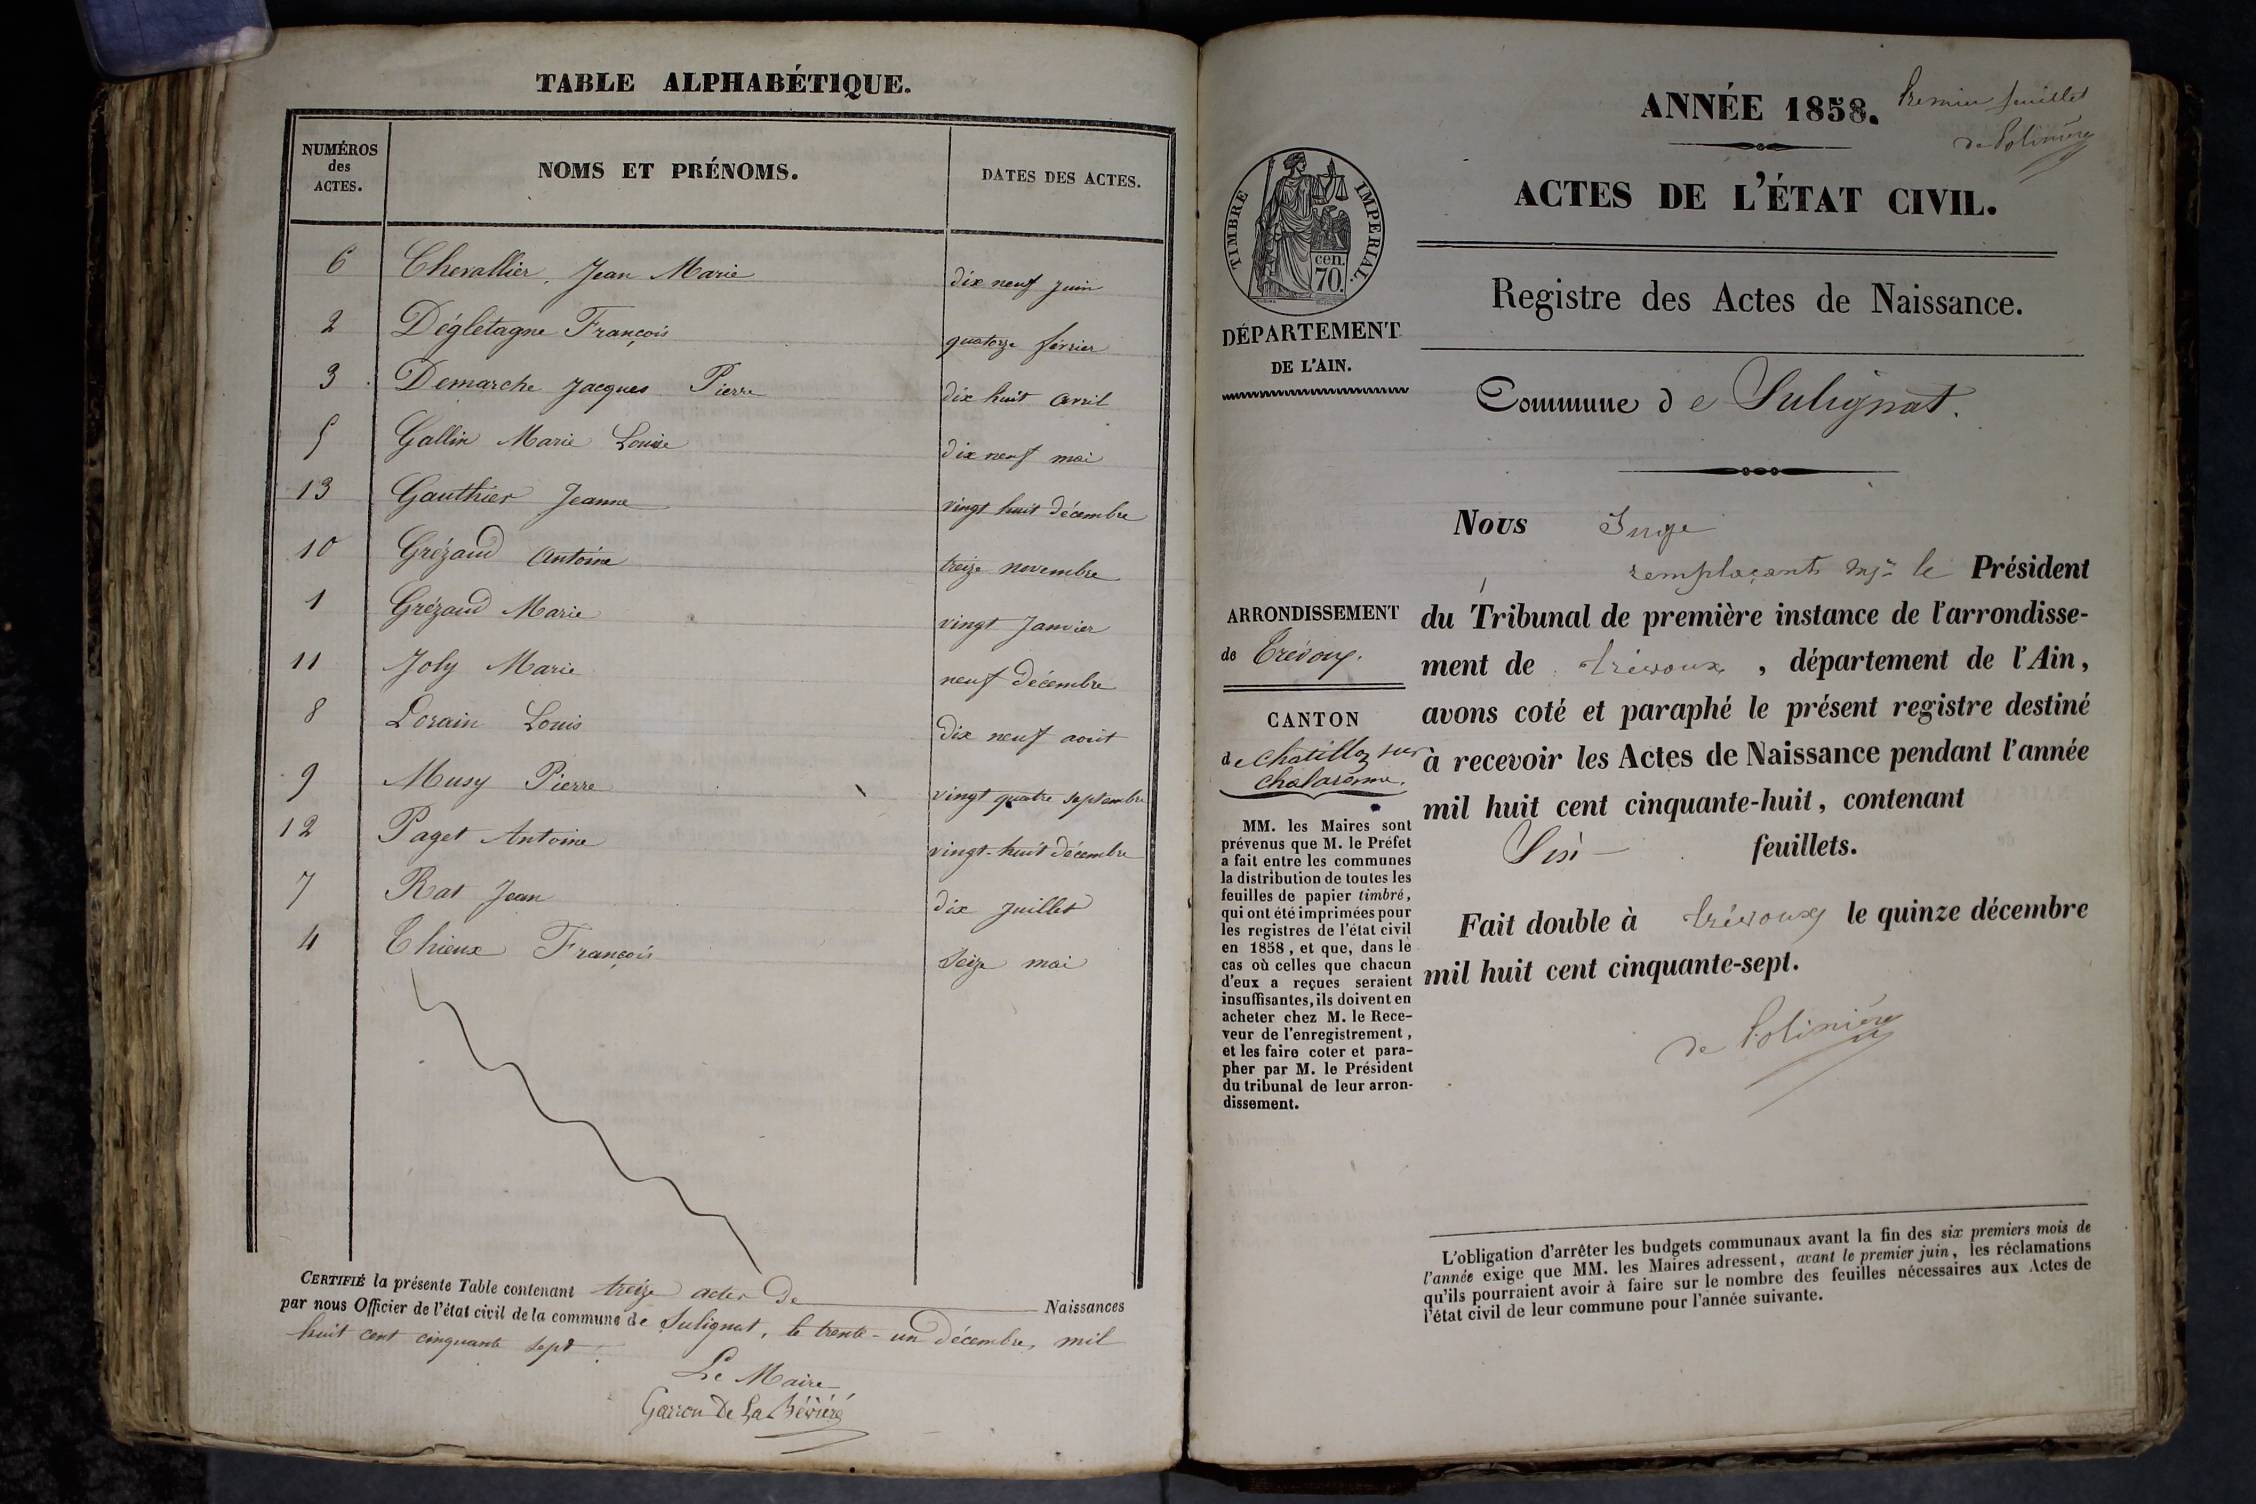 TABLE ALPHABÉTIQUE.
NUMÉROS des ACTES. NOMS ET PRÉNOMS. DATES DES ACTES.
6 Chevallier, Jean Marie dix neuf juin
2 Déglétagne François quatorze février
3 Demarche Jacques Pierre dix huit avril
5 Gallin Marie Louise dix neuf mai
13 Gauthier Jeanne vingt huit décembre
10 Grézaud Antoine treize novembre
1 Grézaud Marie vingt janvier
11 Joly Marie neuf décembre
8 Lorain Louis dix neuf aout
9 Musy Pierre vingt quatre septembre
12 Paget Antoine vingt-huit décembre
7 Rat Jean dix juillet
4 Thieux François seize mai
CERTIFIÉ la présente Table contenant treize actes de Naissances
par nous Officier de l'état civil de la commune de Sulignat, le trente-un décembre, mil
huit cent cinquante sept.
Le Maire
Garron De La Bévière
Premier feuillet
de Polinière
ANNÉE 1858.
ACTES DE L'ÉTAT CIVIL.
Registre des Actes de Naissance.
Commune de Sulignat.
TIMBRE IMPERIAL.
cen.
70.
DÉPARTEMENT
DE L'AIN.
ARRONDISSEMENT
de Trévoux.
CANTON
de Chatillon sur
Chalaronne.
MM. les Maires sont
prévenus que M. le Préfet
a fait entre les communes
la distribution de toutes les
feuilles de papier timbré,
qui ont été imprimées pour
les registres de l'état civil
en 1858, et que, dans le
cas où celles que chacun
d'eux a reçues seraient
insuffisantes, ils doivent en
acheter chez M. le Rece-
veur de l'enregistrement,
et les faire coter et para-
pher par M. le Président
du tribunal de leur arron-
dissement.
Nous Juge
remplaçant Mr le Président
du Tribunal de première instance de l'arrondisse-
ment de trévoux, département de l'Ain,
avons coté et paraphé le présent registre destiné
à recevoir les Actes de Naissance pendant l'année
mil huit cent cinquante-huit, contenant
Six feuillets.
Fait double à trévoux le quinze décembre
mil huit cent cinquante-sept.
de Polinière
L'obligation d'arrêter les budgets communaux avant la fin des six premiers mois de
l'année exige que MM. les Maires adressent, avant le premier juin, les réclamations
qu'ils pourraient avoir à faire sur le nombre des feuilles nécessaires aux Actes de
l'état civil de leur commune pour l'année suivante.